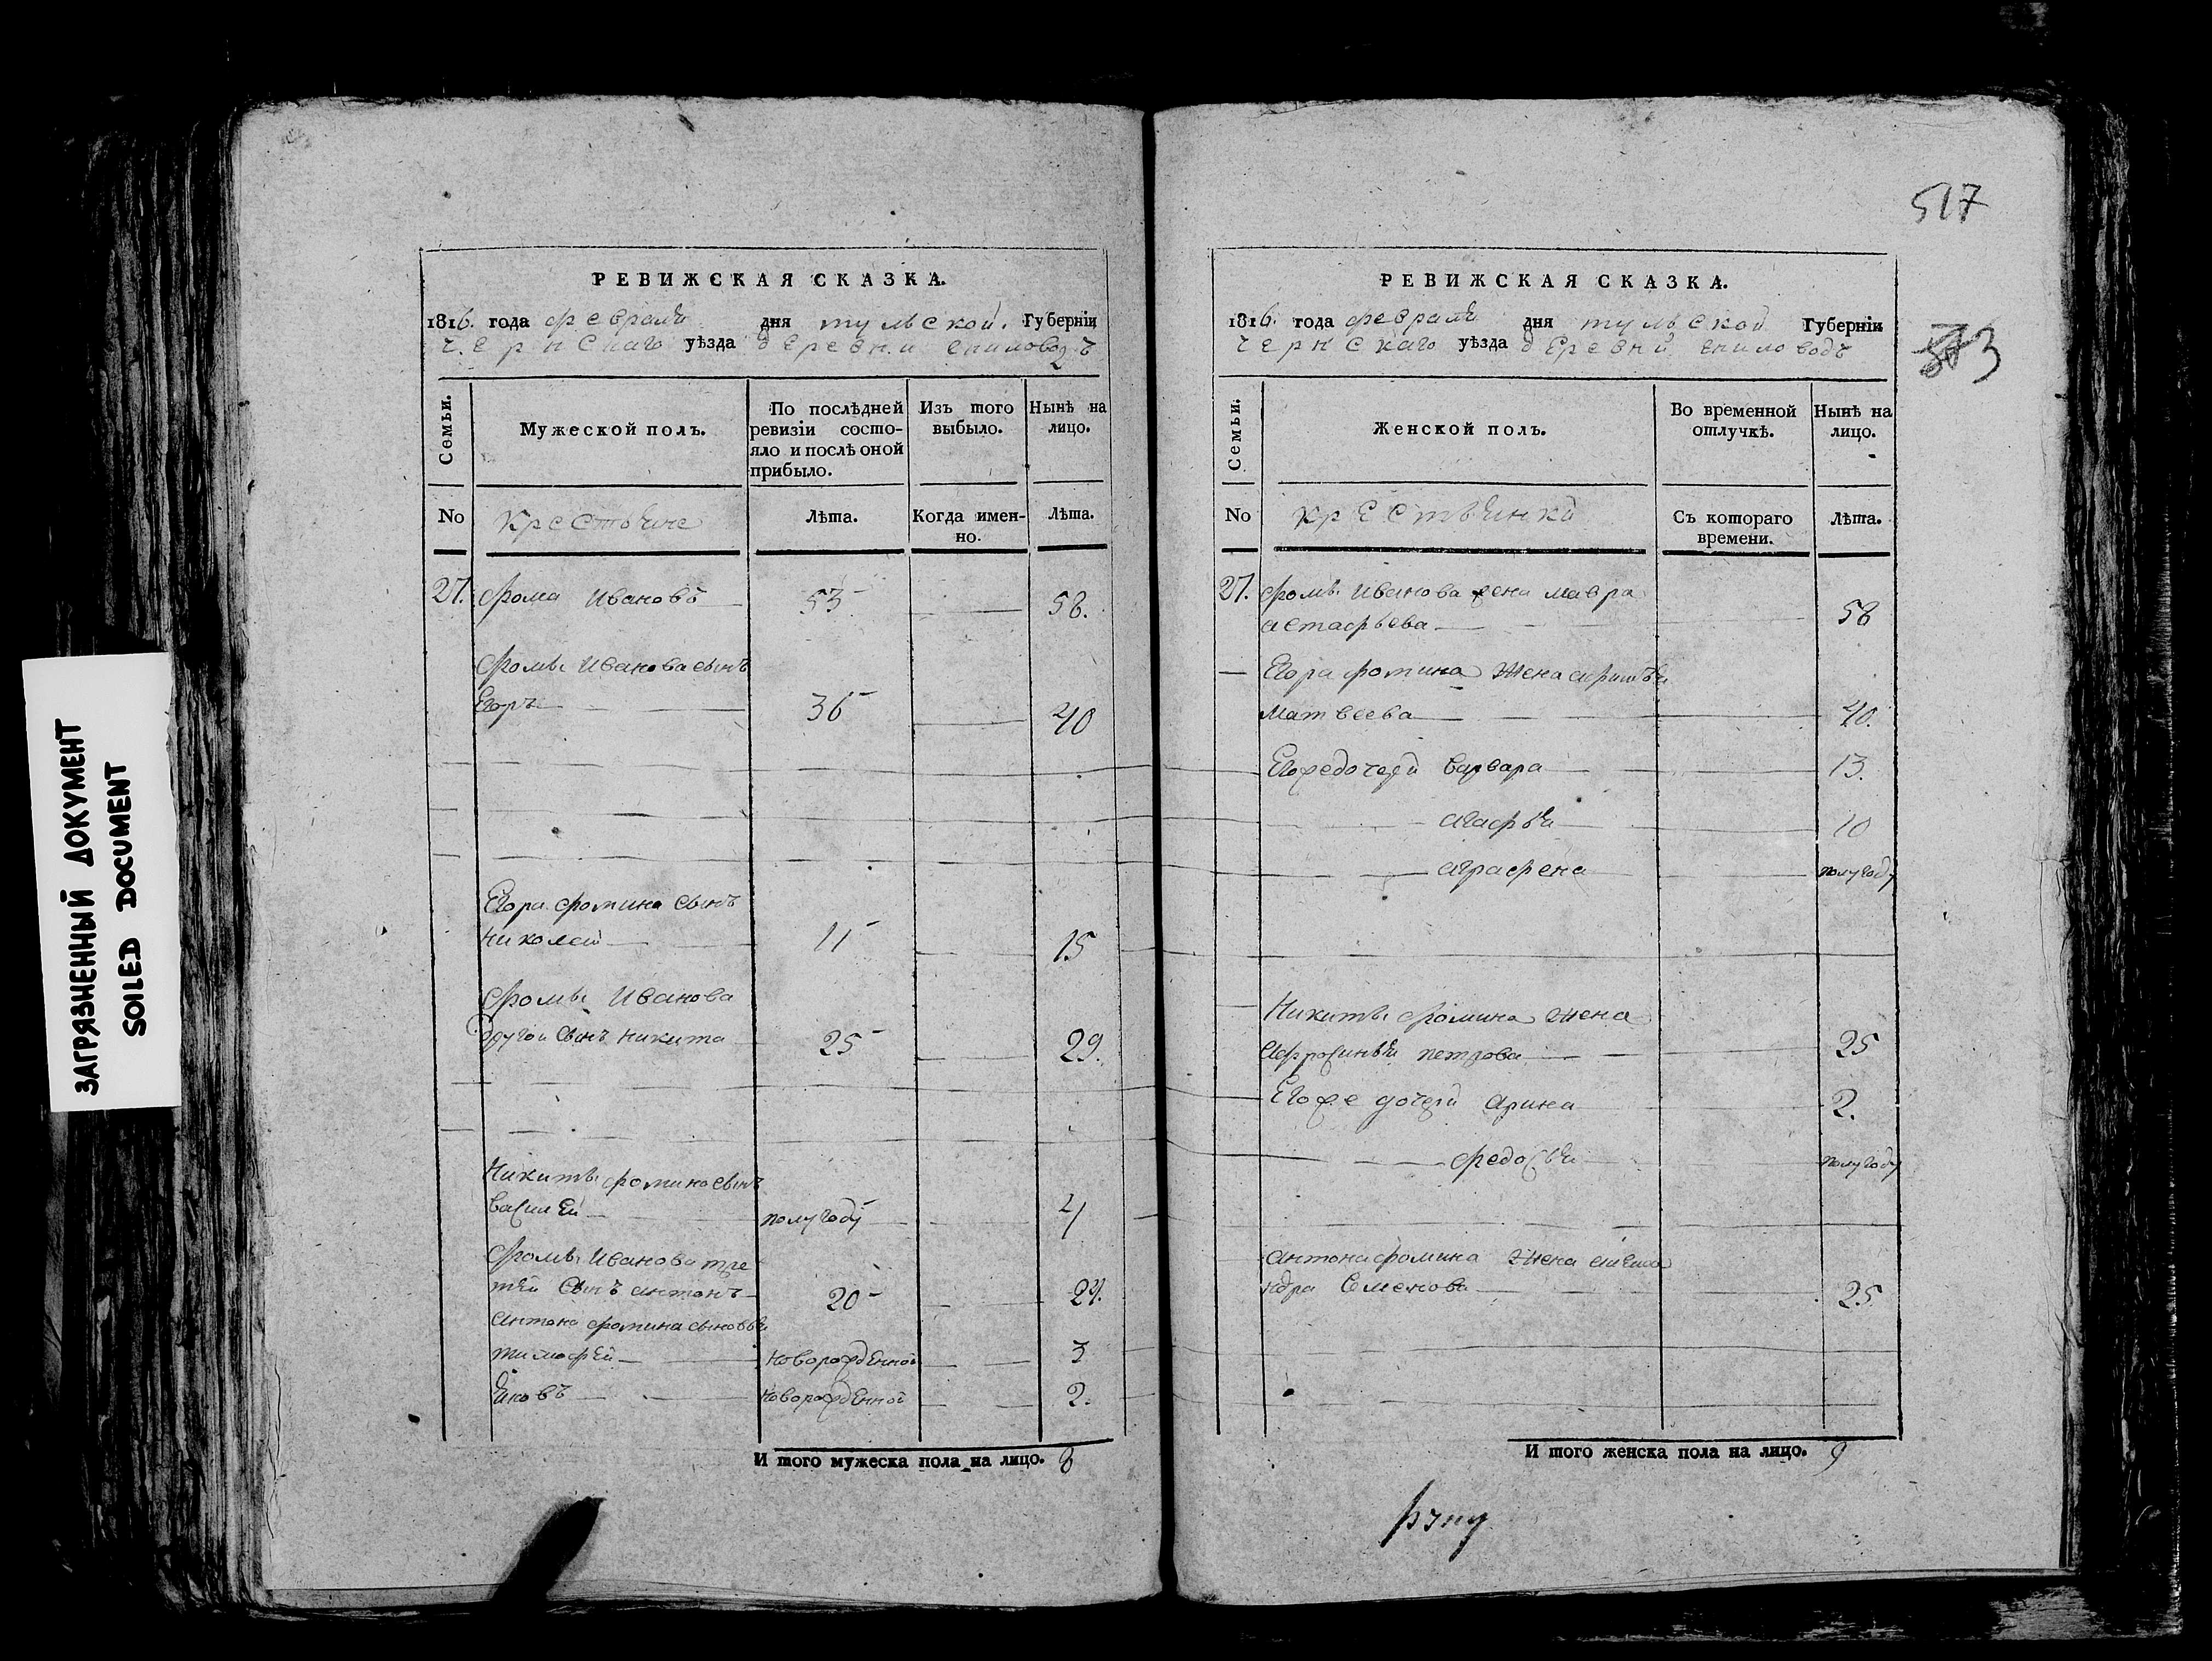 ЗАГРЯЗНЕННЫЙ ДОКУМЕНТ
SOILED DOCUMENT
РЕВИЖСКАЯ СКАЗКА.
1816. года февраля дня тульской. Губерніи
чернскаго уѣзда деревни
Семьи.
Мужеской полъ.
По послѣдней ревизіи состо-
яло и послѣ оной
прибыло.
Изъ того
выбыло.
Нынѣ на
лицо.
No
крестьяне
Лѣта.
Когда имен-
но.
Лѣта.
27. фома Ивановъ 53 58.
фомы Иванова сынъ
Егоръ 36 40
Егора фомина сынъ
николай 11 15
фомы Иванова
другой сынъ никита 25 29.
Никиты фомина сынъ
василей полугоду 4
фомы Иванова тре
тей сынъ антонъ 20 24.
антона фомина сыновья
тимофей новорожденной 3
яковъ новорожденной 2.
И того мужеска пола на лицо. 8
517
РЕВИЖСКАЯ СКАЗКА.
1816. года февраля дня тульской Губерніи
чернскаго уѣзда деревни
3
Семьи.
Женской полъ.
Во временной
отлучкѣ.
Нынѣ на
лицо.
No
крестьянки
Съ котораго
времени.
Лѣта.
27. фомы Иванова жена мавра
астафьева 58
Егора фомина жена
матвеева 40.
Егоже дочери варвара 13.
агафья 10
аграфена полугоду
Никиты фомина жена
афросинья петрова 25
Егоже дочери арина 2.
федосья полугоду
антона фомина жена алекса
ндра семенова 25
И того женска пола на лицо. 9